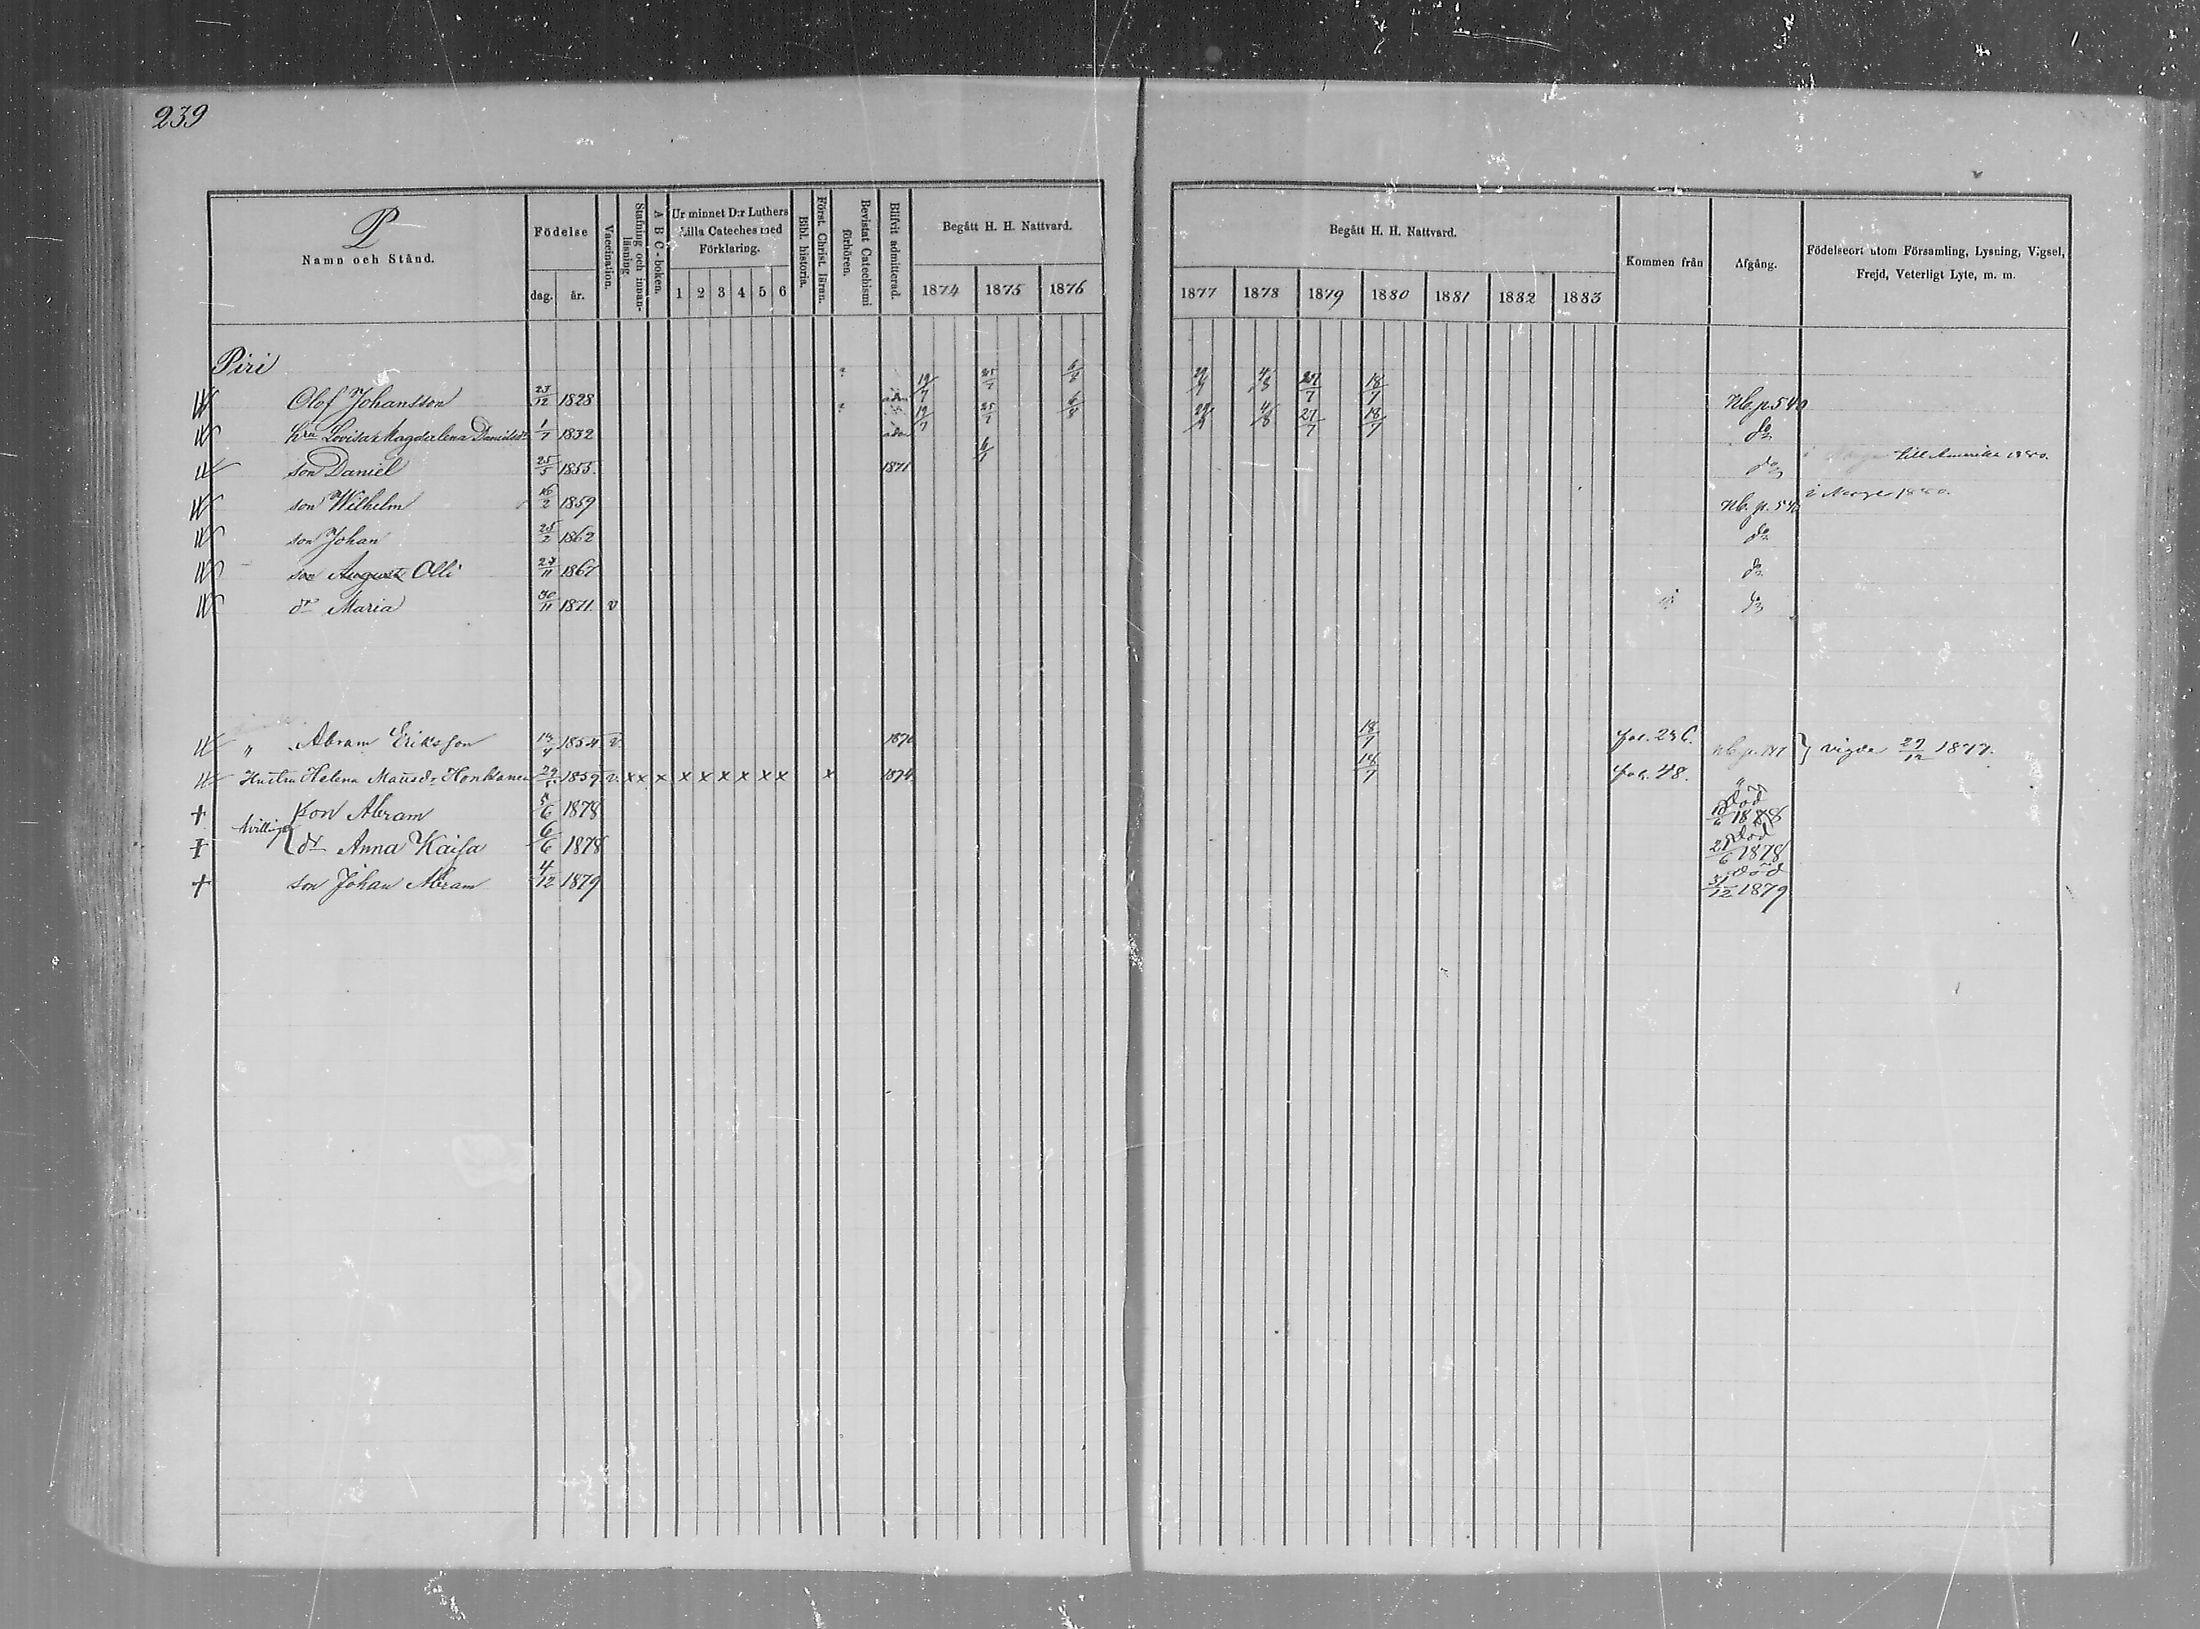 239
P
Namn och Stånd.
Födelse
dag. år.
Vaccination.
Stafning och innan-läsning
A B C-boken.
Ur minnet D:r Luthers Lilla Cateches med Förklaring.
1 2 3 4 5 6
Bibl. historia.
Först. Christ. läran.
Bevistat Catechismi förhören.
Blifvit admitterad.
Begått H. H. Nattvard.
1874 1875 1876
Begått H. H. Nattvard.
1877 1878 1879 1880 1881 1882 1883
Kommen från
Afgång.
Födelseort utom Församling, Lysning, Vigsel, Frejd, Veterligt Lyte, m. m.
Piri
Olof Johansson 12 1828 19/7 25/7 6/8 4/8 27/7 18/7 Nb. p. 540
hru Lovisa Magdalena Danielsdr 1/7 1832 19/7 25/7 6/8 4/8 27/7 18/7 do
son Daniel 25/5 1855 1871 do till Amerika 1880.
son Wilhelm 16/2 1859 Nb. p. 540 i Norge 1880.
son Johan 25/2 1862 do
son August Olli 11 1867 do
dr Maria 30/11 1871. v do
" Abram Eriksson 1854 v. 1870 18/7 fol. 236. } vigde 27/12 1877.
Hustru Helena Honkanen 1859 v. x x x x x x x x x x 1874. 18/7 fol. 48. "
tvillingar son Abram 6 1878 död
dr Anna Kaisa 6/6 1878 död 21/6 1878
son Johan Abram 4/12 1879 död 31/12 1879